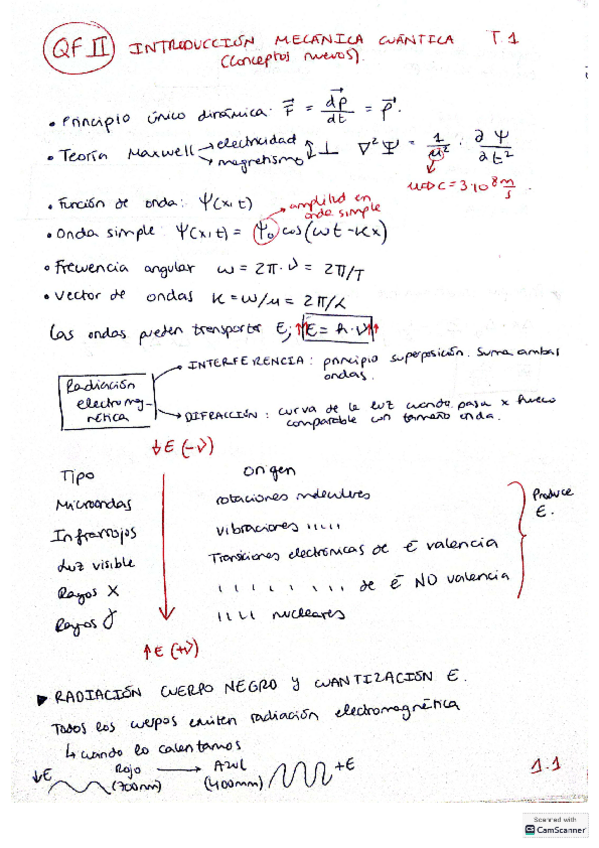 QF II INTRODUCCIÓN MECÁNICA CUÁNTICA T.1
(Conceptos nuevos).
• Principio único dinámica: F⃗ = dp⃗/dt = p⃗'.
• Teoría Maxwell → electricidad → magnetismo ↕⊥ ∇²Ψ = 1/u² · ∂Ψ/∂t²
u⇒c = 3·10⁸ m/s.
• Función de onda: Ψ(x,t)
→ amplitud en onda simple
• Onda simple: Ψ(x,t) = Ψ₀ cos(wt - kx)
• Frecuencia angular w = 2π·ν = 2π/T
• Vector de ondas k = w/u = 2π/λ
Las ondas pueden transportar E; ↑E = h·ν↑
Radiación electromagnética
INTERFERENCIA: principio superposición. Suma ambas
ondas.
DIFRACCIÓN: curva de la luz cuando pasa x hueco
comparable con tamaño onda.
↓E (-ν)
Tipo Origen
Microondas rotaciones moleculares
Infrarrojos vibraciones ıı ıı ı
Luz visible Transiciones electrónicas de ē valencia
Rayos X ı ı ı ı ı ı ı de ē NO valencia
Rayos γ ıı ıı nucleares
Produce
E.
↑E (+ν)
▶ RADIACIÓN CUERPO NEGRO Y CUANTIZACIÓN E.
Todos los cuerpos emiten radiación electromagnética
↳ cuando lo calentamos
↓E Rojo (700nm) → Azul (400nm) +E
1.1
Scanned with
CS CamScanner